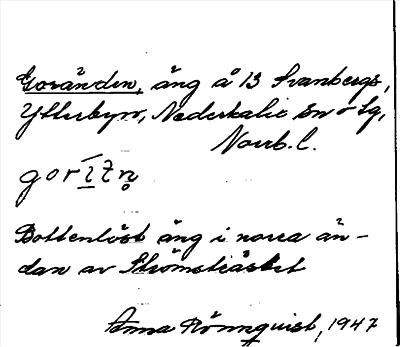 Goränden, äng å 13 Svanbergs,
Ytterbyn, Nederkalix sn o tg,
Norrb. l.
Bottenlöst äng i norra än-
dan av Strömsträsket
Anna Rönnquist, 1947